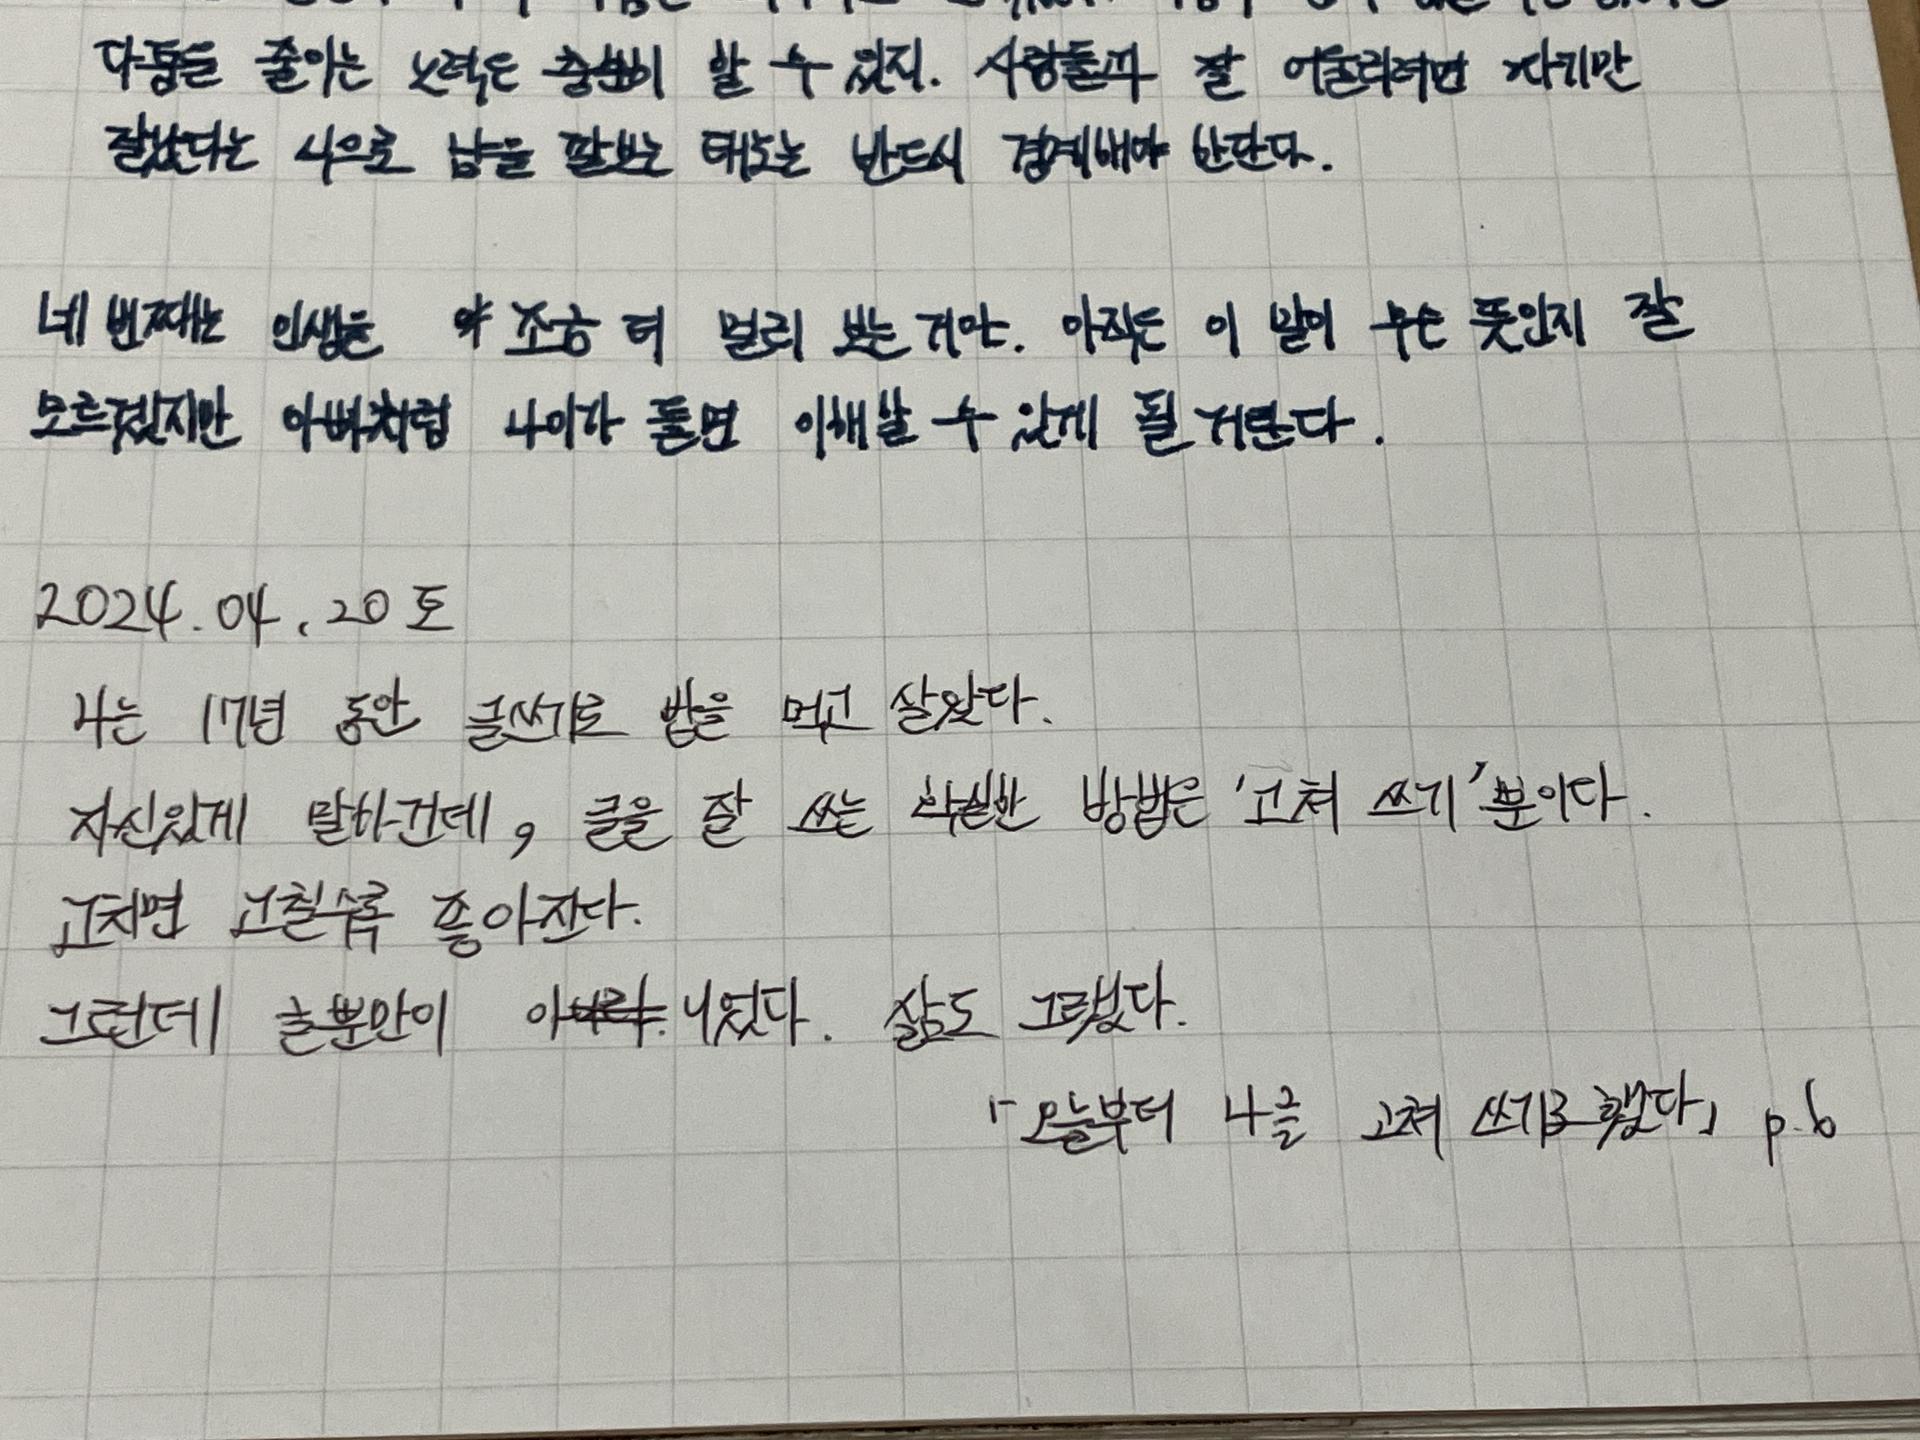 다툼을 줄이는 노력은 충분히 할 수 있지. 사람들과 잘 어울리려면 자기만
잘났다는 식으로 남을 깔보는 태도는 반드시 경계해야 한단다.
네 번째는 인생을 조금 더 멀리 보는 거야. 아직은 이 말이 무슨 뜻인지 잘
모르겠지만 아빠처럼 나이가 들면 이해할 수 있게 될 거란다.
2024.04.20 토
나는 17년 동안 글쓰기로 밥을 먹고 살았다.
자신있게 말하건데, 글을 잘 쓰는 확실한 방법은 '고쳐 쓰기' 뿐이다.
고치면 고칠수록 좋아진다.
그런데 글뿐만이 아니었다. 삶도 그랬다.
「오늘부터 나를 고쳐 쓰기로 했다」 p.6